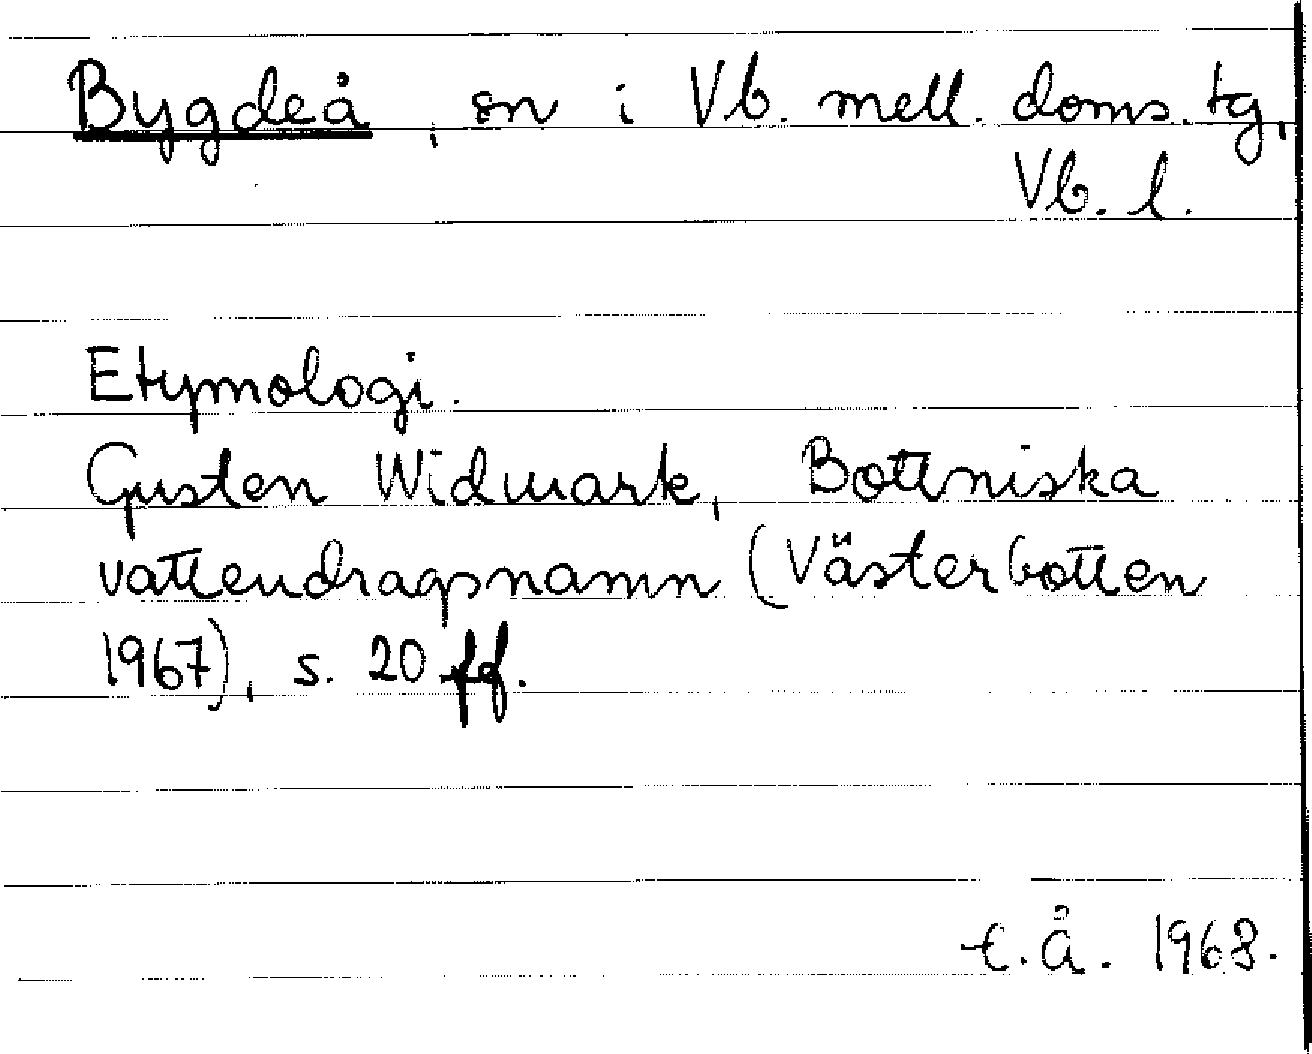 Bygdeå, sn i Vb. mell. doms. tg,
Vb. l.
Etymologi.
Gusten Widmark, Bottniska
vattendragsnamn (Västerbotten
1967), s. 20 ff.
t.Å. 1968.